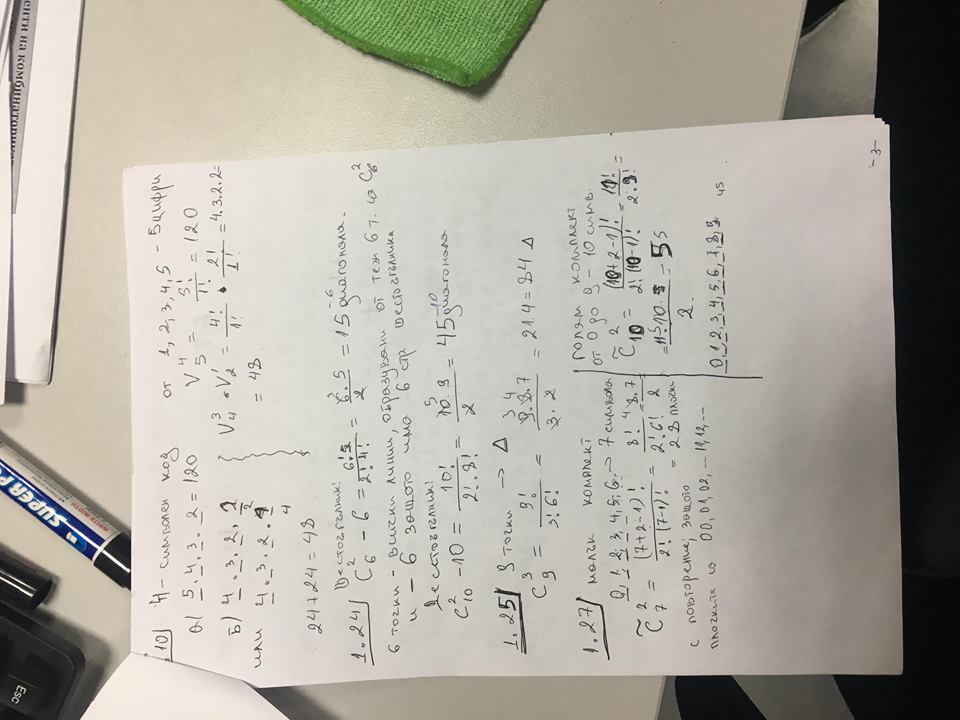 Esc
SUPER
WHITE WORTH
енти на комбинаторика
.10| 4 - символен код от 1, 2, 3, 4, 5 - 5 цифри
а) 5.4.3.2 = 120 V₅⁴ = 5!/1! = 120
Б) 4.3.2.2 V₄³ . V₂¹ = 4!/1! . 2!/1! = 4.3.2.2 =
2
или 4.3.2.1 = 48
4
24 + 24 = 48
Шестоъгълник!
1.24| C₆² - 6 = 6!/2!4! = 6.5/2 = 15 - 6 диагонала.
6 точки - всички линии, образувани от тези 6 т. са C₆²
и - 6 защото има 6 стр шестоъгълника
Десетоъгълник!
C₁₀² - 10 = 10!/2!.8! = 10.9/2 = 45 - 10 диагонала
1.25| 9 точки → Δ
C₉³ = 9!/3!6! = 9.8.7/3.2 = 21.4 = 84 Δ
1.27| малък комплект
0, 1, 2, 3, 4, 5, 6 → 7 символа
C̃₇² = (7+2-1)!/2!(7-1)! = 8!/2!6! = 8.7/2
= 28 плочки
с повторение, защото
плочките са 00, 01, 02, ... 11, 12, ...
голям комплект
от 0 до 9 - 10 симв.
C̃₁₀² = (10+2-1)!/2!(10-1)! = 11!/2!9! =
= 11.10/2 = 55
0, 1, 2, 3, 4, 5, 6, 7, 8, 9 45
- 3 -